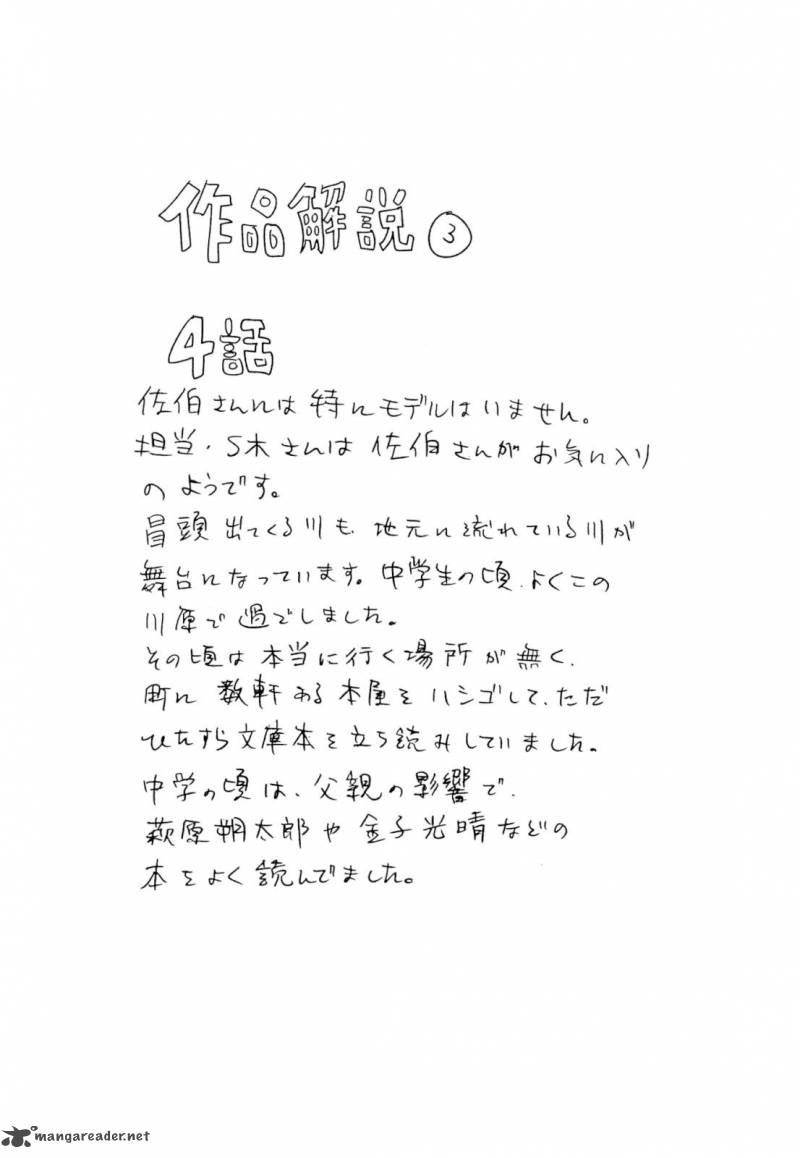 作品解説③
4話
佐伯さんには特にモデルはいません。
担当・S木さんは佐伯さんがお気に入り
のようです。
冒頭出てくる川も、地元に流れている川が
舞台になっています。中学生の頃、よくこの
川原で過ごしました。
その頃は本当に行く場所が無く、
町に数軒ある本屋をハシゴして、ただ
ひたすら文庫本を立ち読みしていました。
中学の頃は、父親の影響で、
萩原朔太郎や金子光晴などの
本をよく読んでました。
mangareader.net